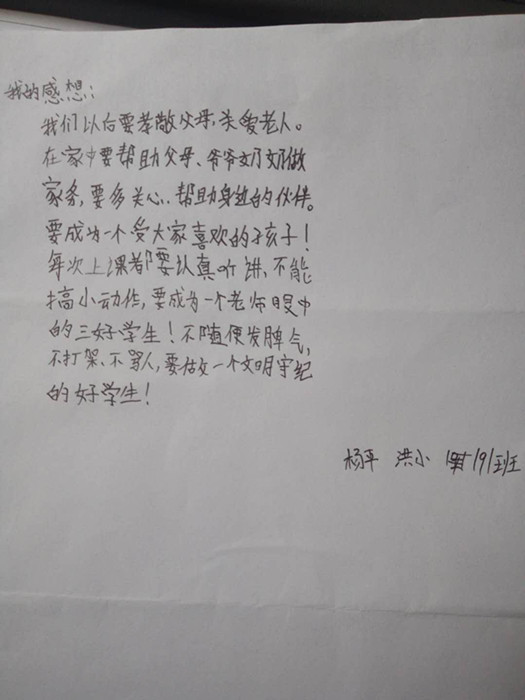 我的感想：
我们以后要孝敬父母,关爱老人。
在家中要帮助父母、爷爷奶奶做
家务,要多关心、帮助身边的伙伴。
要成为一个受大家喜欢的孩子！
每次上课都要认真听讲,不能
搞小动作,要成为一个老师眼中
的三好学生！不随便发脾气,
不打架、不骂人,要做一个文明守纪
的好学生！
杨平 洪小 191班